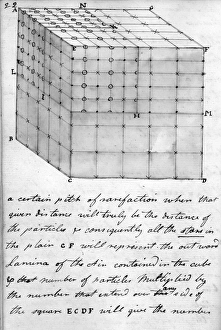 22
A N P
E F
L
I
H M
B
C D
a certain pitch of rarefaction when that
given distance will truely be the distance of
the particles & consequently all the stars in
the plain C F will represent the outward
lamina of the Air contained in the cube
that number of particles Multiplyed by
the number that extend over any side of
the square E C D F will give the number